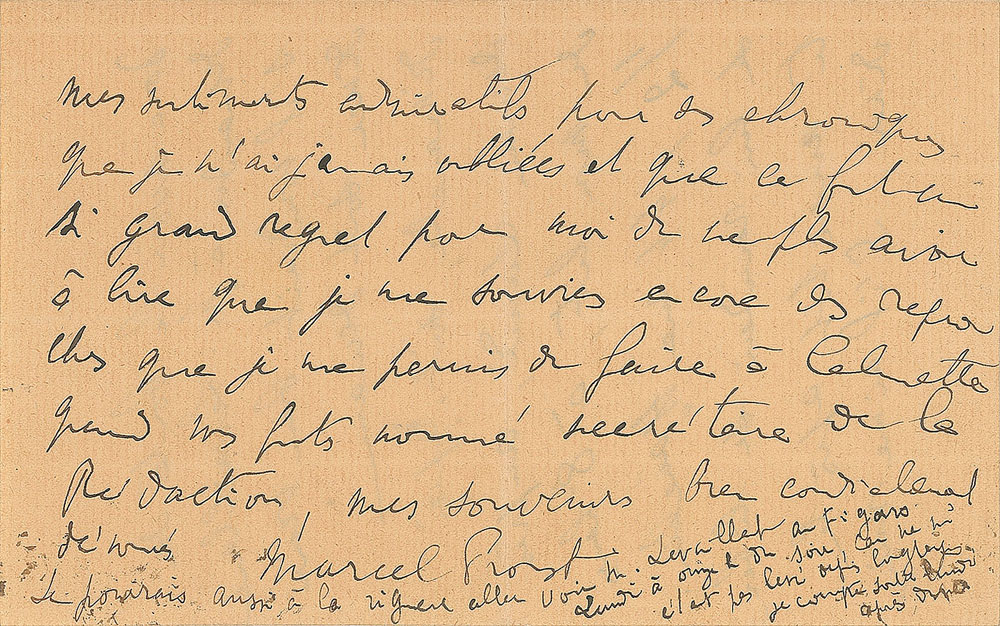 mes sentiments admiratifs pour des chroniques
que je n'ai jamais oubliées et que ce fut un
si grand regret pour moi de ne plus avoir
à lire que je me souviens encore des repro
ches que je me permis de faire à Calmette
quand vous futs nommé secrétaire de la
Rédaction, mes souvenirs bien cordialement
dévoués
Marcel Proust
Je pourrais aussi à la rigueur aller voir M. Levallet au Figaro
Lundi à onze h du soir,
c'est pas levé depuis longtemps
je compte sortir lundi
après dîner